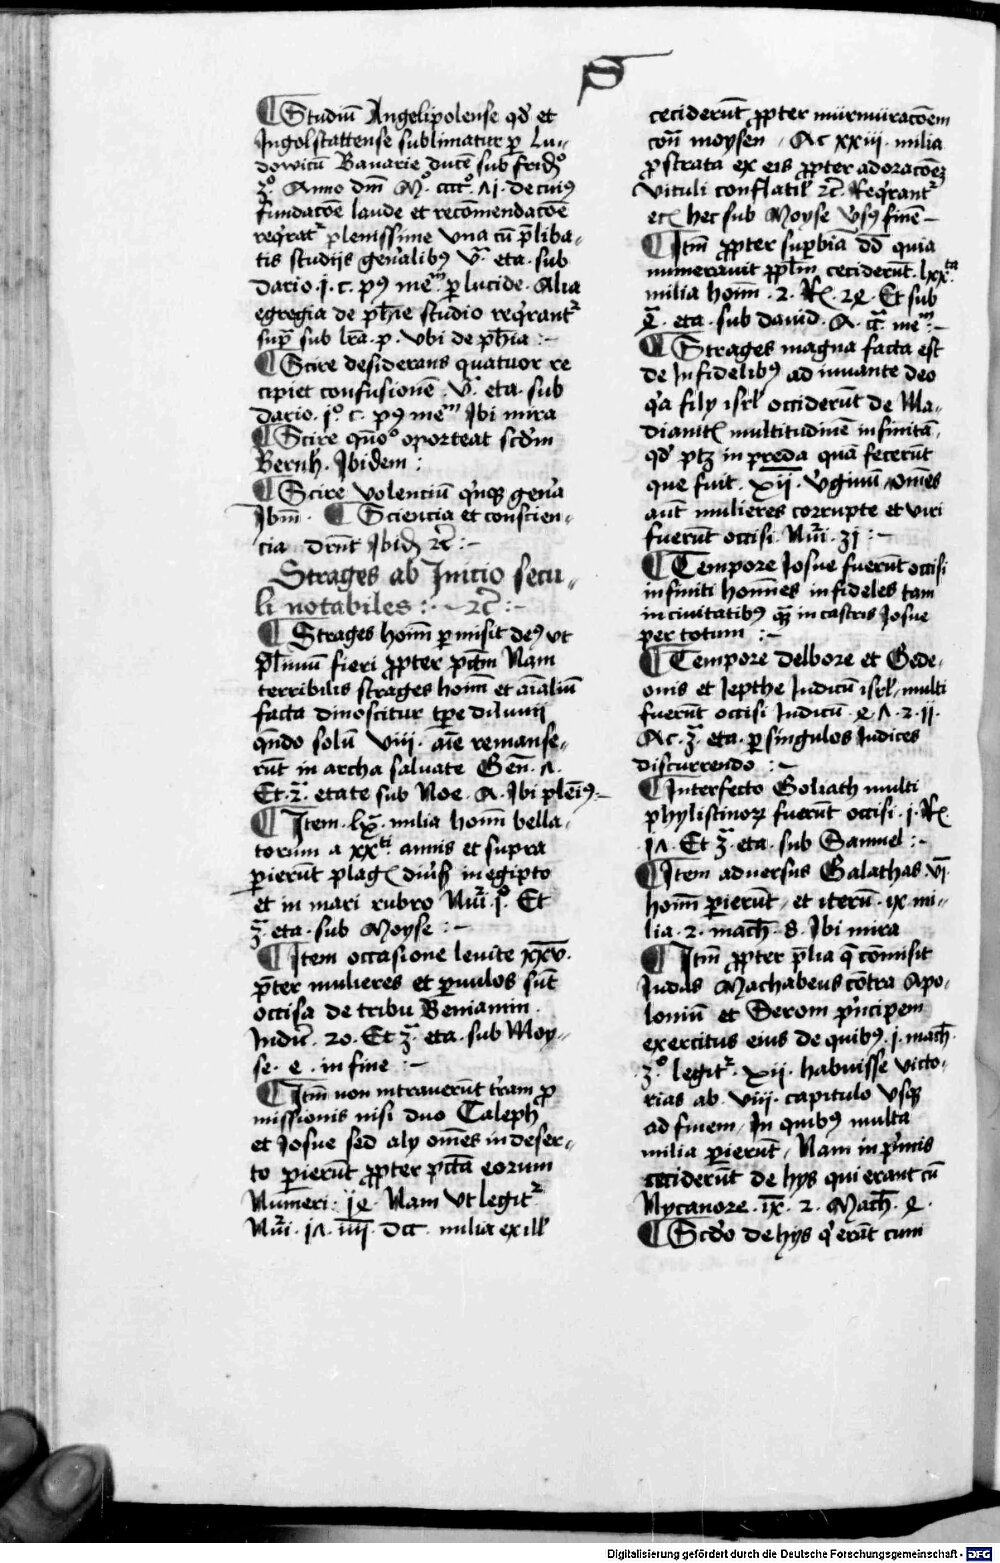 S
¶ Studiū Angelipolense qd̄ et
Ingolstattense sublimatur p̲ Lu-
dowicū Bauarie ducē sub frid̄o
ʒo. Anno dm̄ Mo. ccccᵒ. ʌj. de cuiꝯ
fundacōe laude et recōmendacōe
reqͥratᷣ plenissime vna cū p̄liba-
tis studijs gen̄alibꝯ v̄. eta. sub
Dario .j. c. pꝯ mem̄. p̲ lucide. Alia
egregia de ph̄ie studio reqͥrantᷣ
sup̄ sub lr̄a .p. vbi de ph̄ia :-
¶ Scire desiderans quatuor re
cipiet confusionē. v̄. eta. sub
Dario .jo. c. pꝯ mem̄ Ibi mira
¶ Scire qūoo oporteat scd̄m
Bernh. Ibidem :
¶ Scire volenciū qͥnqꝫ gen̄a
Ibm̄. ¶ Sciencia et conscien-
cia drn̄t Ibid̄ ⁊c̄ :-
Strages ab Inicio secu-
li notabiles : - ⁊c̄ :-
¶ Strages hoīm p̲misit deꝯ vt
pl̄imū fieri ꝓpter pctm̄ Nam
terribilis strages hoīm et aīaliū
facta dinoscitur tꝑe diluuij
qn̄do solū viii. aīe remanse-
rūt in archa saluate Gen̄. ʌ.
Et .2ᵃ. etate sub Noe. A. Ibi pleniꝯ:-
¶ Item .lxᵃ. milia hoīm bella-
torum a xxti. annis et supra
ꝑierūt plagꝭ diūsꝭ in egipto
et in mari rubro Nūi .jo. Et
ʒᵃ eta. sub Moyse :-
¶ Item occasione leuite xxxv.
p̄ter mulieres et ꝑuulos sūt
occisa de tribu Beniamin.
Iudic̄. 20. Et ʒᵃ eta. sub Moy-
se. e. in fine :-
¶ Itm̄ non intrauerūt tr̄am ꝓ
missionis nisi duo Caleph
et Iosue sed aly om̄es in deser-
to ꝑierūt ꝓpter pctā eorum
Numeri : 1ꝭ Nam vt legitᷣ
Nūi. 1ʌ. iiij. dcc. milia ex ill̄
ceciderūt ꝓpter mūrmūracōem
con̄ moysen. Ac xxiii. milia
ꝓstrata ex eis ꝓpter adoracōeꝫ
vituli conflatilꝭ ⁊c̄. Reqͥrantᷣ
etꝭ hec sub Moyse v̄sꝯ finē -
¶ Itm̄ ꝓpter sup̲biā dd̄ quia
numerauit ppl̄m ceciderūt. lxxta.
milia hoīm. 2. Rꝭ. 2ꝭ. Et sub
eta. sub dauid. A. mem̄:-
¶ Strages magna facta est
de Infidelibꝯ adiuuante deo
qͥa fily isrl̄ occiderūt de Ma-
dianitꝭ multitudinē infinitā.
qd̄ ptꝫ in preda quā fecerūt
que fuit. xij. v̄ginū. om̄es
aūt mulieres corrupte et viri
fuerūt occisi. Nūi. ʒj :-
¶ Tempore Iosue fuerūt occisi
infiniti hom̄nes infideles tam
in ciuitatibꝯ qꝫ in castris Iosue
per totum :-
¶ Tempore Delbore et Gede-
onis et Iepthe Iudicū isrl̄, multi
fuerūt occisi Iudicū. ꝭ. ʌ. 2. jj.
Ac. ʒᵃ. eta. ꝑ singulos Iudices
discurrendo :-
¶ Interfecto Goliath multi
phylistinoꝝ fuerūt occisi. j. Rꝭ.
1ʌ. Et ʒᵃ eta. sub Samuel :-
¶ Item aduersus Galathas vj.
hoīm ꝑierūt, et iterū. ix. mi-
lia. 2. mach̄. 8. Ibi mira
¶ Itm̄ ꝓpter p̄lia q̄ cōmisit
Iudas Machabeus cōtra Apo-
loniū et Serom pͥncipem
exercitus eius de quibꝯ. j. mach̄.
ʒo. legitᷣ. xij. habuisse victo-
rias ab. viij. capitulo vsqꝫ
ad finem, In quibꝯ multa
milia ꝑierūt, Nam in pͥmis
ceciderūt de hys qui erant cū
Nycanore. ix. 2. Mach̄. ꝭ.
¶ Scdō de hys qͥ erāt cum
Digitalisierung gefördert durch die Deutsche Forschungsgemeinschaft - DFG